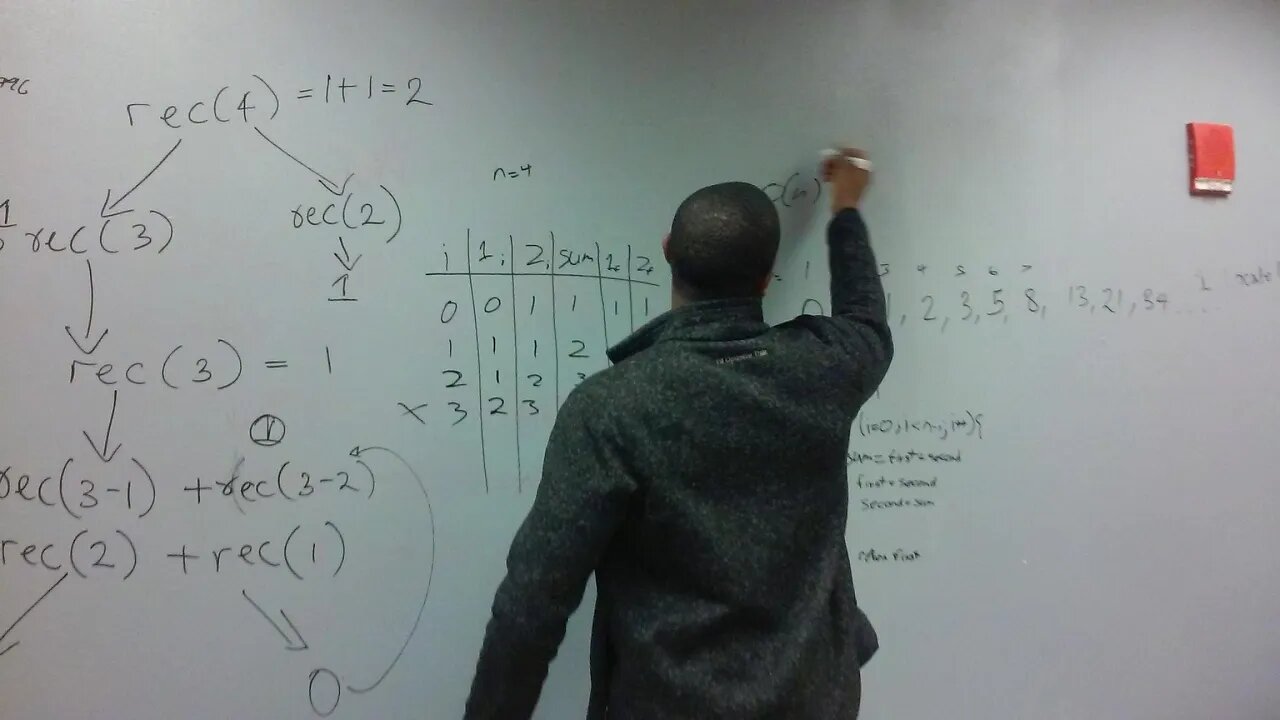 rec(4) = 1+1=2
rec(3)
rec(2)
1
rec(3) = 1
1
rec(3-1) + rec(3-2)
rec(2) + rec(1)
0
n=4
i 1. 2. sum 1. 2.
0 0 1 1 1 1
1 1 1 2
2 1 2 3
x 3 2 3
O(n)
1 3 4 5 6 7
0 1, 2, 3, 5, 8, 13, 21, 34 ....
sum = first + second
first = second
second = sum
return first